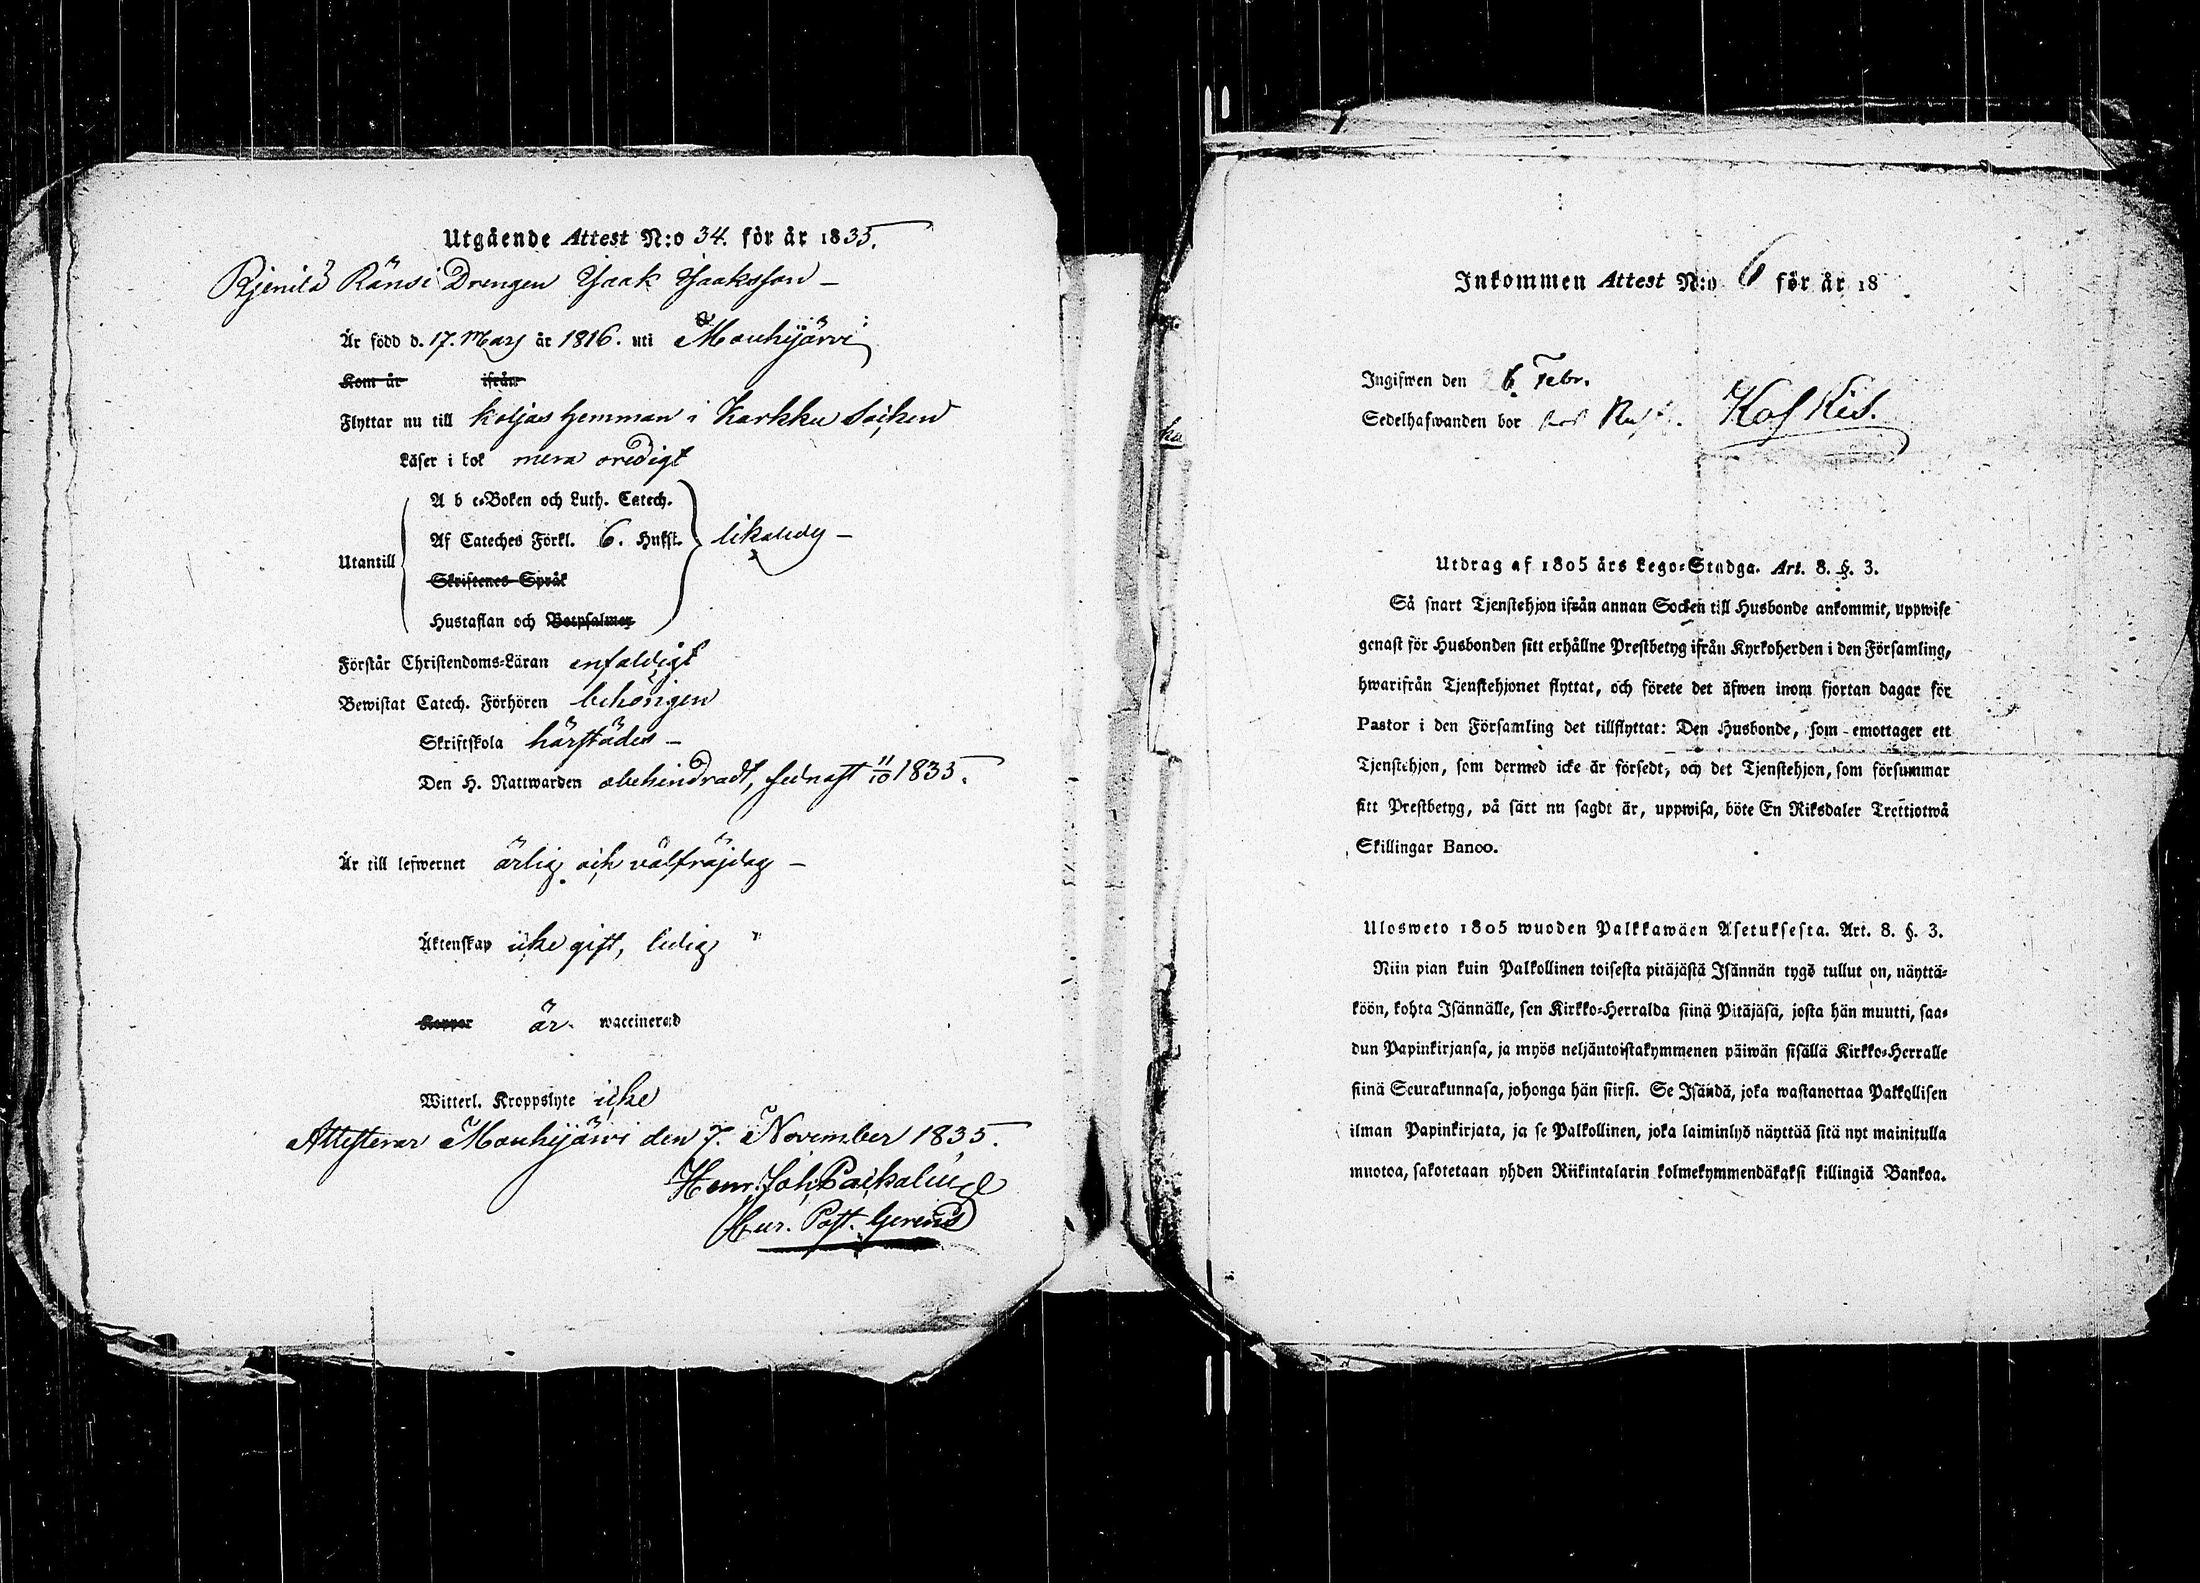 Utgående Attest N:o 34. för år 1835.
Ränsi Drengen Isaak Isaaksson –
Är född d. 17. Mars år 1816. uti Mouhijärvi
Kom år ifrån
Flyttar nu till Koljas hemman i Karkku Socken
Läser i bok mera oredigt
A b c-Boken och Luth. Catech.
Af Cateches Förkl. 6. Hufst. likaledes –
Utantill
Skriftenes Språk
Hustaflan och Botpsalmer
Förstår Christendoms-Läran enfaldigt
Bewistat Catech. Förhören behörigen
Skriftskola härstädes –
Den H. Nattwarden obehindradt, sednast 11/10 1835.
Är till lefwernet ärlig och välfräjdag –
Äktenskap icke gift, ledig
Koppor är waccinerad
Witterl. Kroppslyte icke
Attesterar Mouhijärvi den 7. November 1835.
Henr. Joh.
Cur. Past. Gerens
Inkommen Attest N:o 6 för år 18
Ingifwen den 6 Febr.
Sedelhafwanden bor
Utdrag af 1805 års Lego-Stadga. Art. 8. §. 3.
Så snart Tjenstehjon ifrån annan Socken till Husbonde ankommit, uppwise
genast för Husbonden sitt erhållne Prestbetyg ifrån Kyrkoherden i den Församling,
hwarifrån Tjenstehjonet flyttat, och förete det äfwen inom fjortan dagar för
Pastor i den Församling det tillflyttat: Den Husbonde, som emottager ett
Tjenstehjon, som dermed icke är försedt, och det Tjenstehjon, som försummar
sitt Prestbetyg, på sätt nu sagdt är, uppwisa, böte En Riksdaler Trettiotwå
Skillingar Banco.
Ulosweto 1805 wuoden Palkkawäen Asetuksesta. Art. 8. §. 3.
Niin pian kuin Palkollinen toisesta pitäjästä Isännän tygö tullut on, näyttä-
köön, kohta Isännälle, sen Kirkko-Herralda siinä Pitäjäsä, josta hän muutti, saa-
dun Papinkirjansa, ja myös neljäntoistakymmenen päiwän sisällä Kirkko-Herralle
siinä Seurakunnasa, johonga hän siirsi. Se Isändä, joka wastanottaa Palkollisen
ilman Papinkirjata, ja se Palkollinen, joka laiminlyö näyttää sitä nyt mainitulla
muotoa, sakotetaan yhden Riikintalarin kolmekymmendäkaksi killingiä Bankoa.